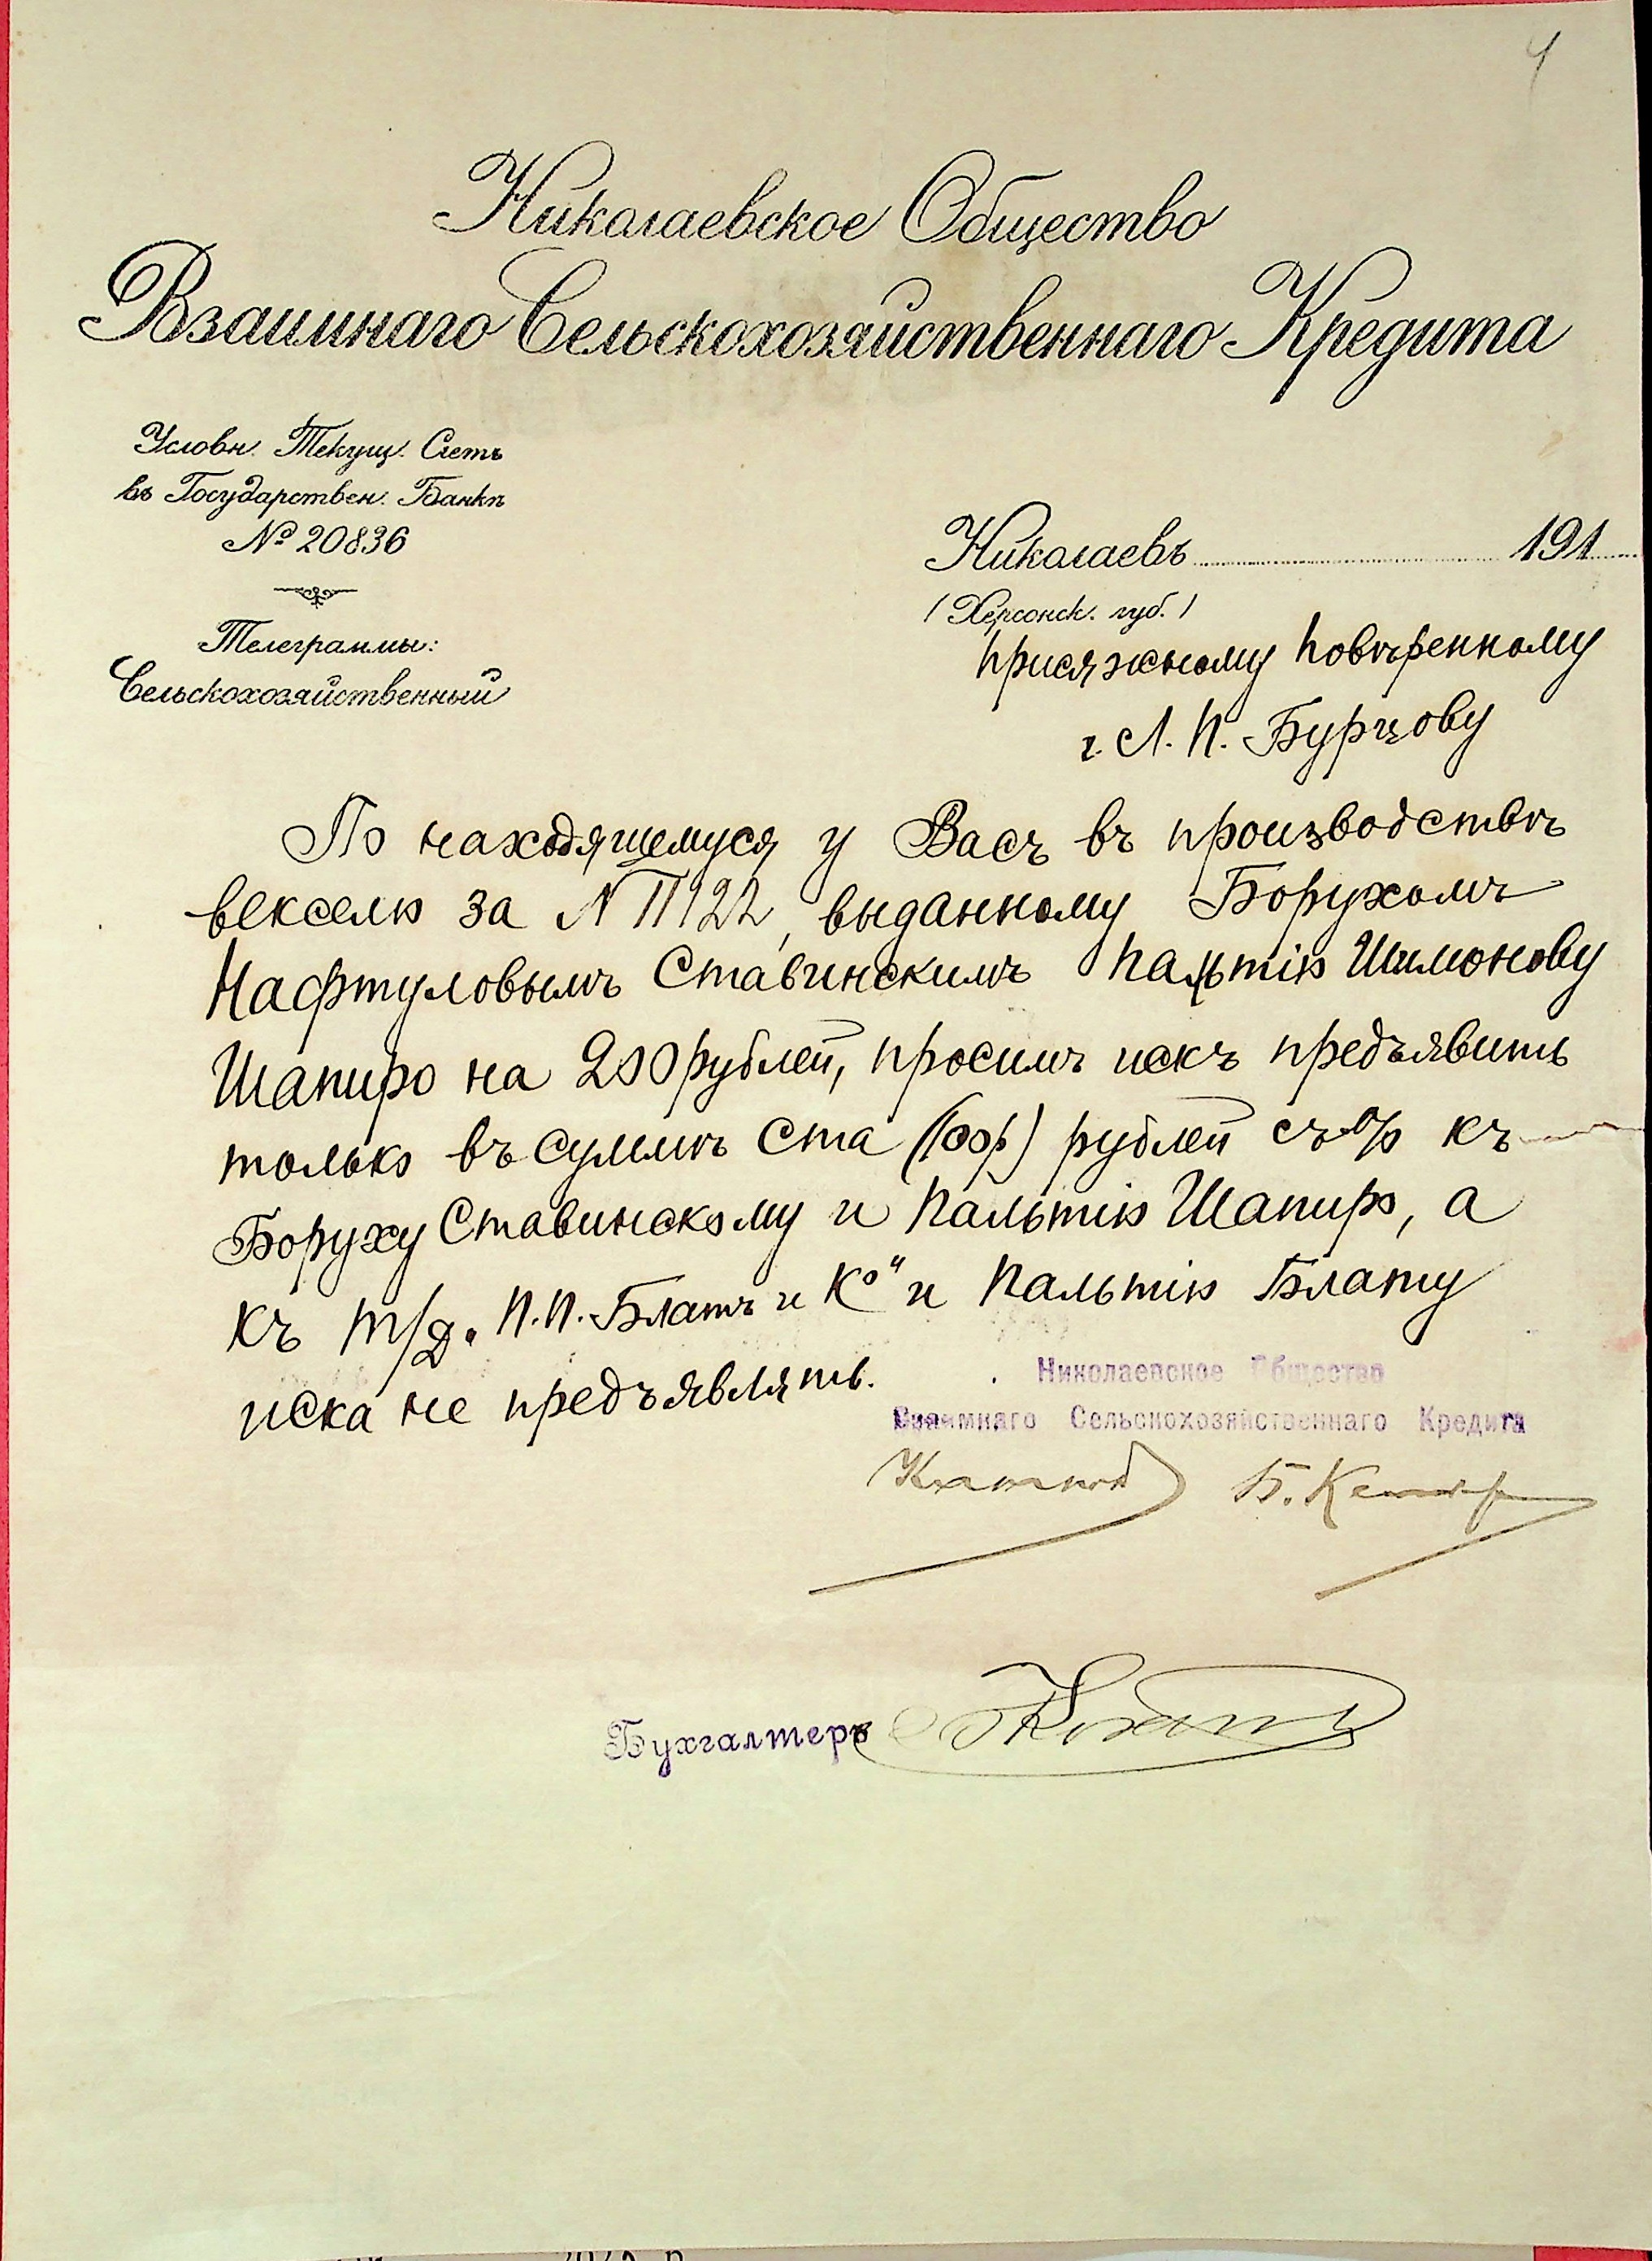 4
Николаевское Общество
Взаимнаго Сельскохозяйственнаго Кредита
Условн. Текущ. Счетъ
въ Государствен. Банкѣ
№ 20836
Телеграммы:
Сельскохозяйственный
Николаевъ 191
(Херсонск. губ.)
Присяжному Повѣренному
г. Л. П. Бурцову
По находящемуся у Васъ въ производствѣ
векселю за N 11922, выданному Борухомъ
Нафтуловымъ Ставинскимъ Пальтію Шимонову
Шапиро на 200 рублей, просимъ искъ предъявить
только въ суммѣ Ста (100р) рублей съ % къ
Боруху Ставинскому и Пальтію Шапиро, а
къ Т/Д. „П.П. Блатъ и Ко" и Пальтію Блату
иска не предъявлять.
Николаевское Общество
Взаимнаго Сельскохозяйственнаго Кредита
Б.
Бухгалтеръ